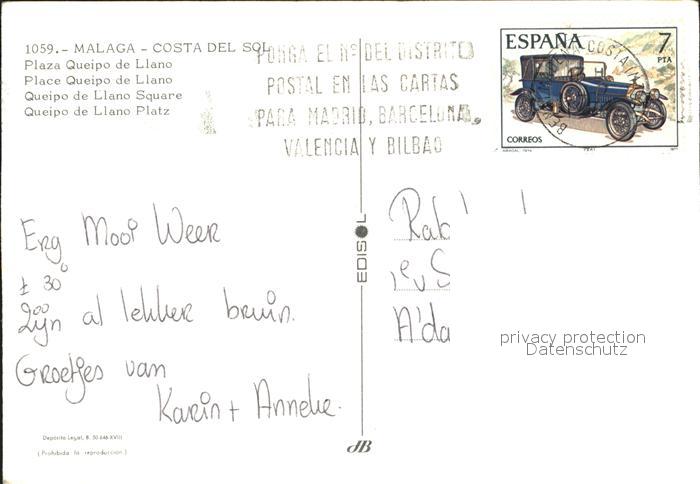 1059.- MALAGA - COSTA DEL SOL
Plaza Queipo de Llano
Place Queipo de Llano
Queipo de Llano Square
Queipo de Llano Platz
PONGA EL Nº DEL DISTRITO
POSTAL EN LAS CARTAS
PARA MADRID, BARCELONA,
VALENCIA Y BILBAO
ESPAÑA 7
PTA
CORREOS
Erg Mooi Weer
± 30°
Zijn al lekker bruin.
Groetjes van
Karin + Anneke.
EDISOL
Rab
A'da
privacy protection
Datenschutz
Depósito Legal, B. 50.646-XVIII
(Prohibida la reproducción)